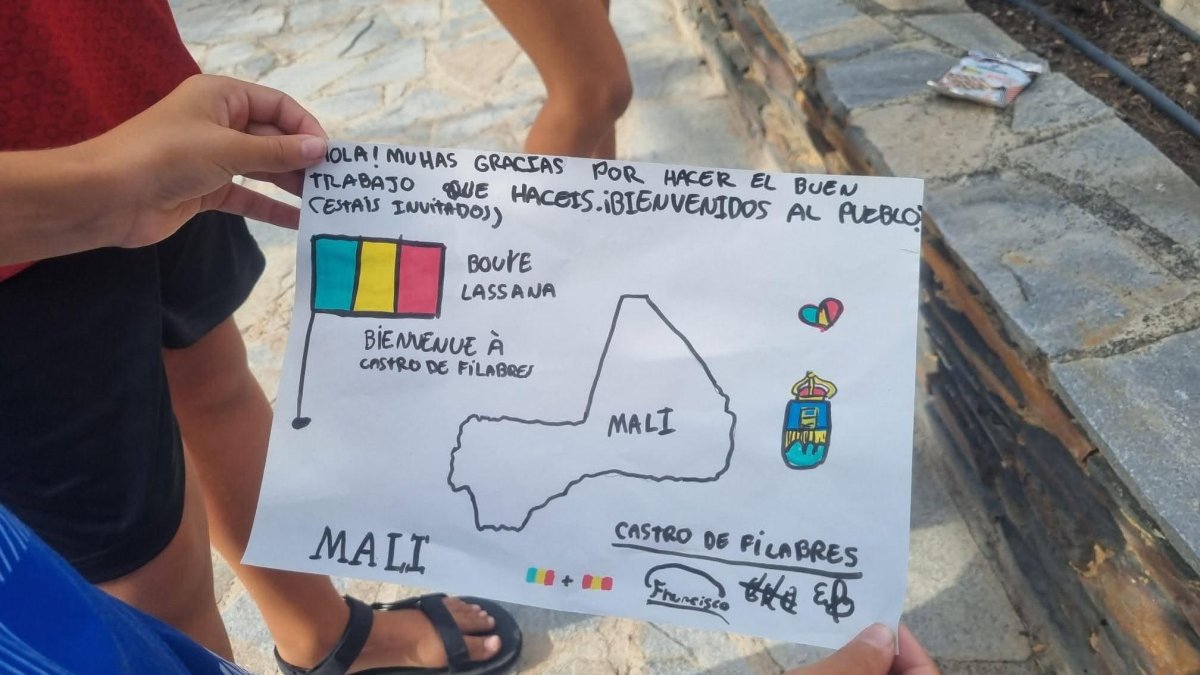 HOLA! MUHAS GRACIAS POR HACER EL BUEN
TRABAJO QUE HACEIS. ¡BIENVENIDOS AL PUEBLO!
(ESTAIS INVITADOS)
BOUYE
LASSANA
BIENVENUE À
CASTRO DE FILABRES
MALI
MALI
CASTRO DE FILABRES
+
Francisco